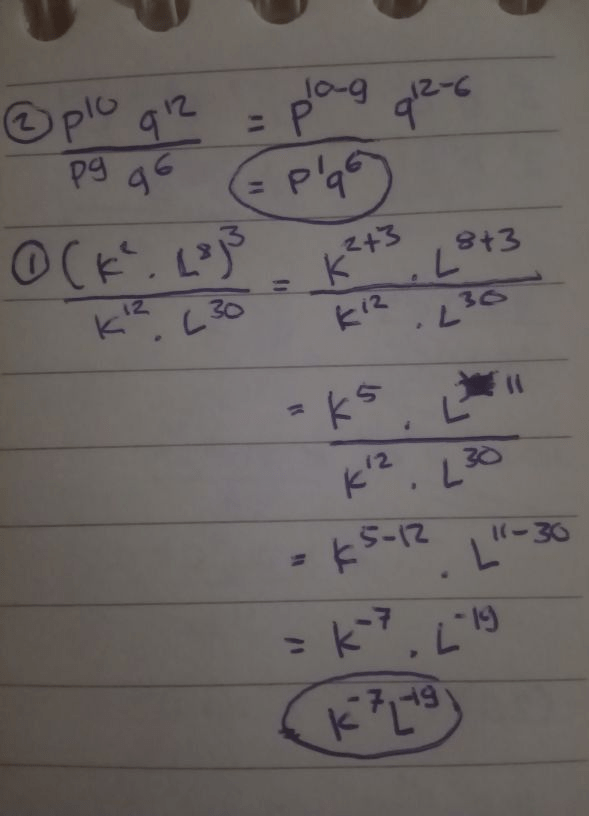 ② p¹⁰ q¹² / p⁹ q⁶ = p¹⁰⁻⁹ q¹²⁻⁶
= p¹q⁶
① (K² · L⁸)³ / K¹² · L³⁰ = K²⁺³ · L⁸⁺³ / K¹² · L³⁰
= K⁵ · L¹¹ / K¹² · L³⁰
= K⁵⁻¹² · L¹¹⁻³⁰
= K⁻⁷ · L⁻¹⁹
K⁻⁷L⁻¹⁹